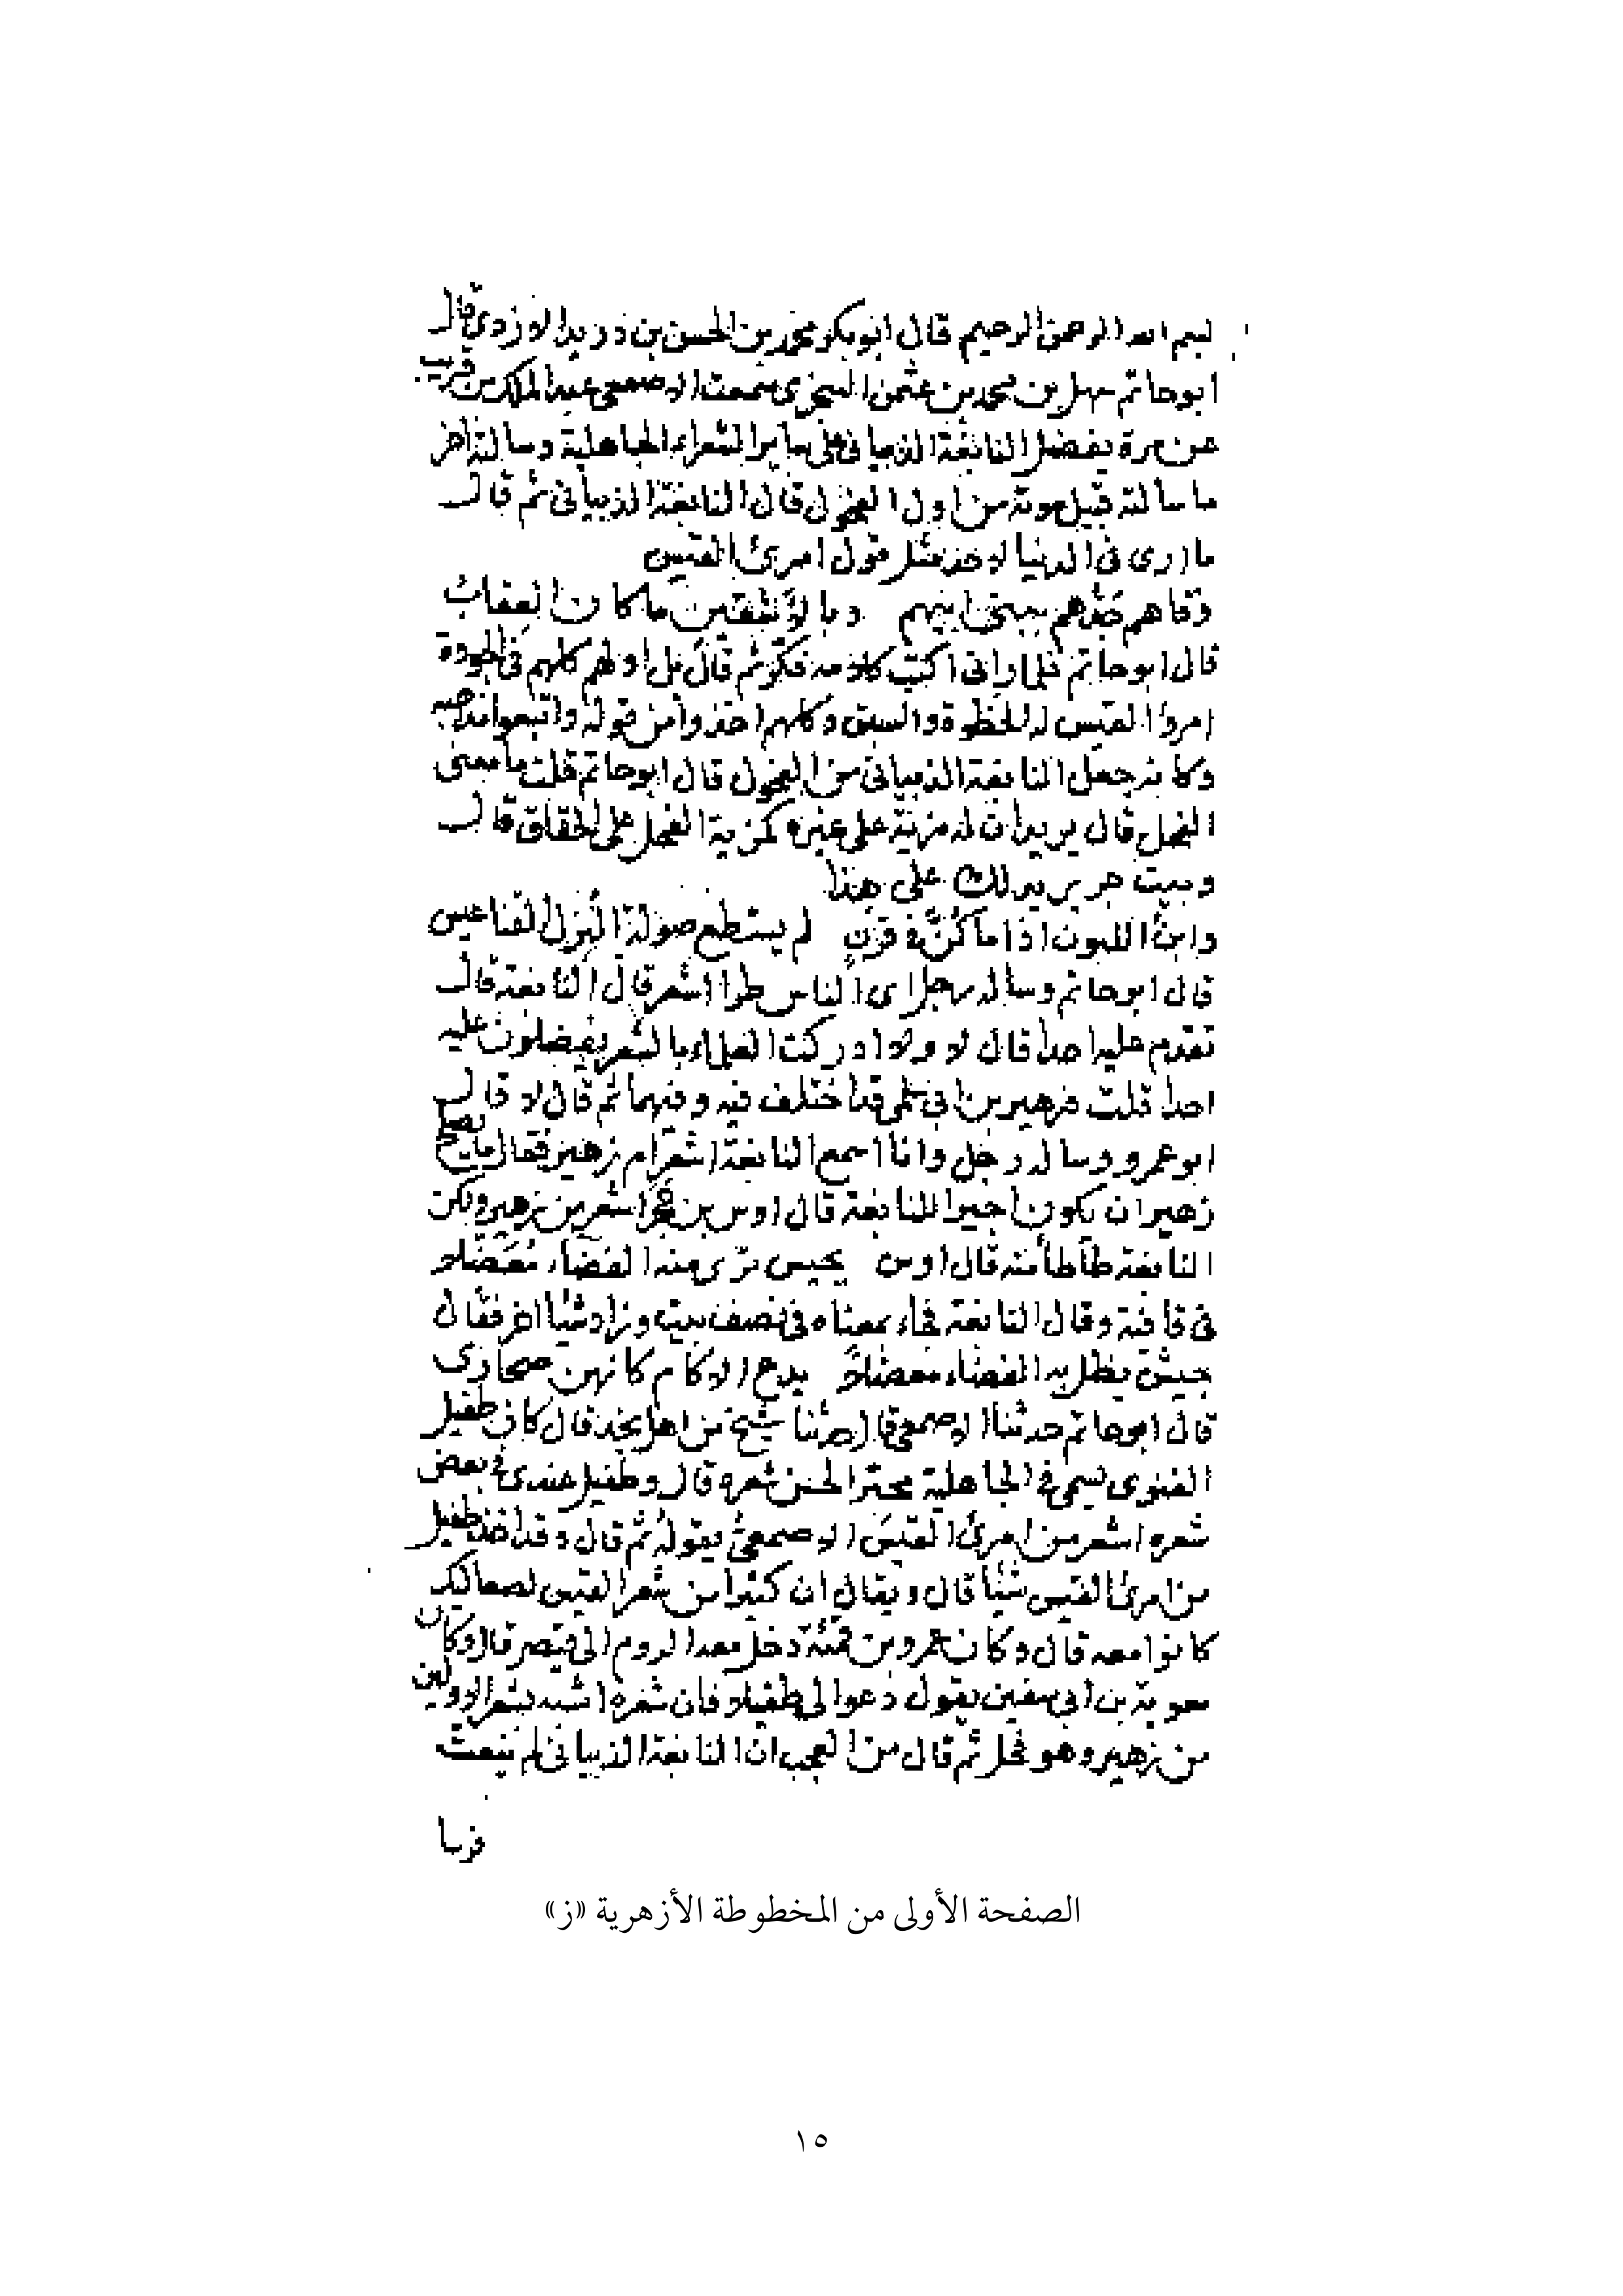 بسم الله الرحمن الرحيم قال ابو بكر محمد بن الحسن بن دريد الازدي قال
ابو حاتم سهل بن محمد بن عثمن السجزى سمعت الاصمعى عبد الملك بن قريب
غير مرة يفضل النابغة الذبيانى على ساير الشعراء الجاهلية وسالته اخر
ما سالته قبيل موته من اول الفحول قال النابغة الذبيانى ثم قال
ما ارى فى الدنيا لاحد مثل قول امرئ القيس
وقاهم جدهم ببنى ابيهم وبالاشقين ما كان العقاب
قال ابو حاتم فلما رانى اكتب كلامه فكر ثم قال بل اولهم كلهم فى الجودة
امرؤ القيس له الحظوة والسبق وكلهم اخذوا من قوله واتبعوا مذهبه
وكانه جعل النابغة الذبيانى من الفحول قال ابو حاتم قلت ما معنى
الفحل قال يريد ان له مزية على غيره كمزية الفحل على الحقاق قال
وبيت جرير يدلك على هذا
وابن اللبون اذا ما لز فى قرن لم يستطع صولة البزل القناعيس
قال ابو حاتم وساله رجل اى الناس طرا اشعر قال النابغة قال
تقدم عليه احدا قال لا ولا ادركت العلماء بالشعر يفضلون عليه
احدا قلت فزهير بن ابى سلمى قد اختلف فيه وفيهما ثم قال لا قال
ابو عمرو وساله رجل وانا اسمع النابغة اشعر ام زهير فقال ما يصلح
زهير ان يكون اجيرا للنابغة قال اوس بن حجر اشعر من زهير ولكن
النابغة طأطأ منه قال اوس بجيش ترى منه الفضاء معضلا
فى قافية وقال النابغة فجاء بمعناه فى نصف بيت وزاد شيئا اخر فقال
جيش يظل به الفضاء معضلا يدع الاكام كانهن صحارى
قال ابو حاتم حدثنا الاصمعى قال حدثنا شيخ من اهل نجد قال كان طفيل
الغنوى يسمى فى الجاهلية محبرا لحسن شعره قال وطفيل عندى فى بعض
شعره اشعر من امرئ القيس الاصمعى يقوله ثم قال وقد اخذ طفيل
من امرئ القيس شيئا قال ويقال ان كثيرا من شعر امرئ القيس لصعاليك
كانوا معه قال وكان عمرو بن قميئة دخل معه الروم الى قيصر قال وكان
معوية بن ابى سفين يقول دعوا لى طفيلا فان شعره اشبه بشعر الاولين
من زهير وهو فحل ثم قال من العجب ان النابغة الذبيانى لم ينعت
فرسا
الصفحة الأولى من المخطوطة الأزهرية «ز»
١٥